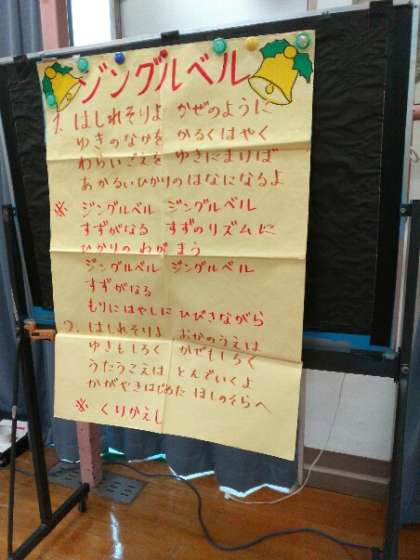 ジングルベル
1. はしれそりよ かぜのように
ゆきのなかを かるくはやく
わらいごえを ゆきにまけば
あかるいひかりの はなになるよ
※ ジングルベル ジングルベル
すずがなる すずのリズムに
ひかりの わが まう
ジングルベル ジングルベル
すずがなる
もりにはやしに ひびきながら
2. はしれそりよ おかのうえは
ゆきもしろく かぜもしろく
うたうこえは とんでいくよ
かがやきはじめた ほしのそらへ
※ くりかえし